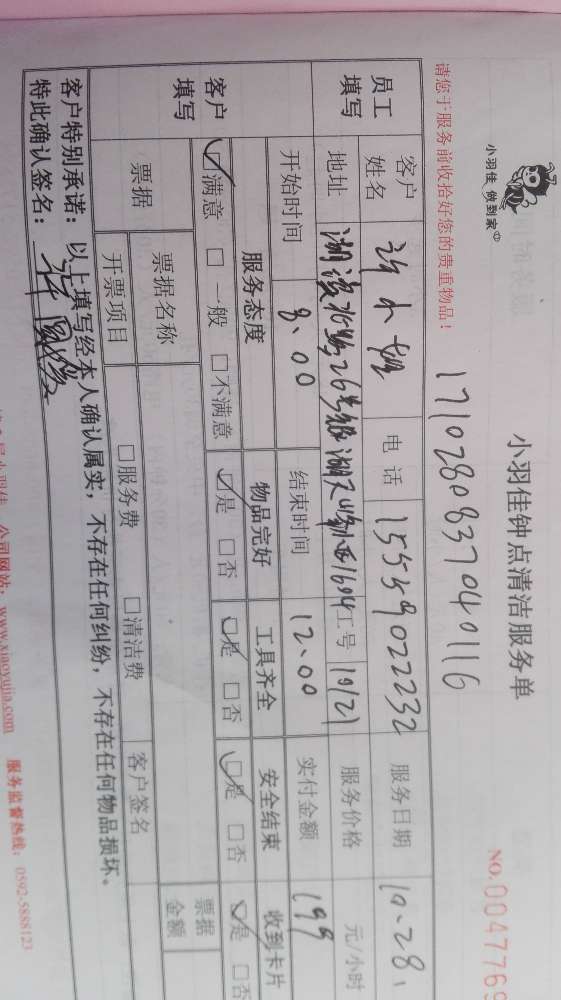 小羽佳 做到家
小羽佳钟点清洁服务单
NO.0047769
请您于服务前收拾好您的贵重物品！
1710280837040116
员工填写
客户姓名 许小姐 电话 15559022232 服务日期 10.28.
地址 湖滨北路26号 1604 工号 10121 服务价格 元/小时
开始时间 8:00 结束时间 12:00 实付金额 199
客户填写
服务态度 物品完好 工具齐全 安全结束 收到卡片
☑满意 □一般 □不满意 ☑是 □否 ☑是 □否 ☑是 □否 ☑是 □否
票据 票据名称 票据金额
开票项目 □服务费 □清洁费 客户签名
客户特别承诺：以上填写经本人确认属实，不存在任何纠纷，不存在任何物品损坏。
特此确认签名：
公司网站：www.xiaoyujia.com 服务监督热线：0592-5888123